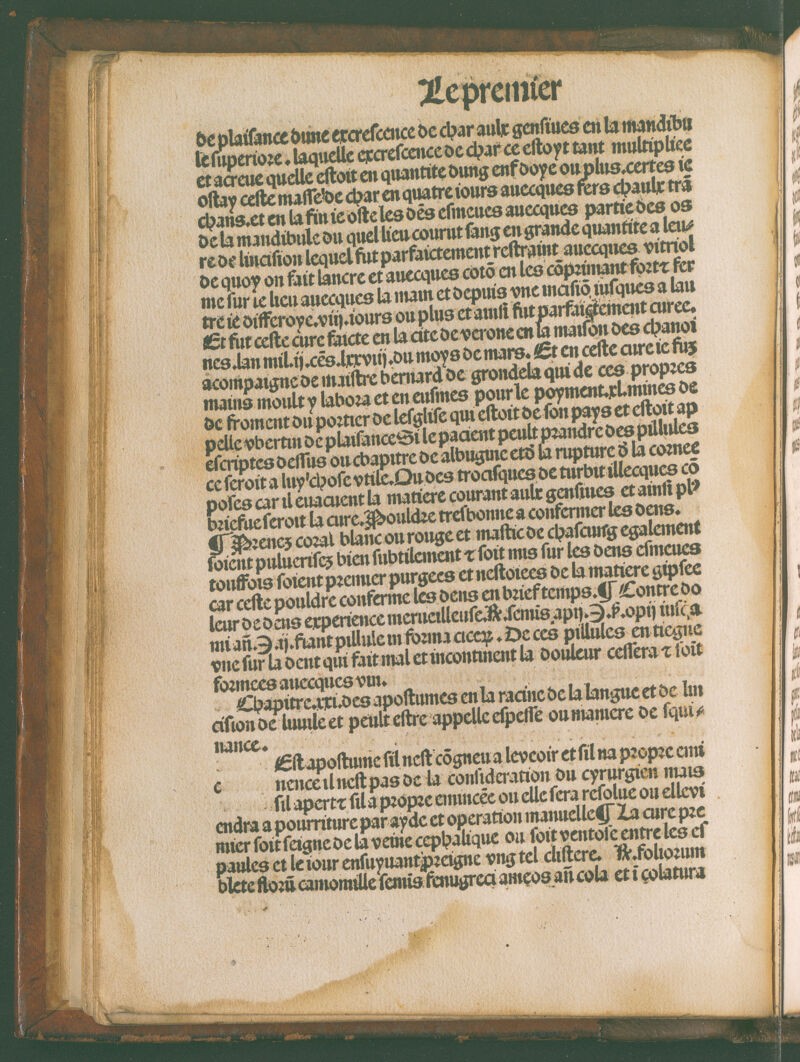 Le premier
de plaisance dune excrescence de char aulx gensiues en la mandibu
le superiore. laquelle excrescence de char ce estoyt tant multipliee
et acreue quelle estoit en quantite dung enf doye ou plus.certes ie
ostay ceste masse de char en quatre iours auecques fers chaulx trã
chans.et en la fin ie oste les dẽs esmeues auecques partie des os
de la mandibule du quel lieu courut sang en grande quantite a leu⸗
re de lincision lequel fut parfaictement restraint auecques vitriol
de quoy on fait lancre et auecques cotõ en les cõprimant fort⁊ fer
me sur le lieu auecques la main et depuis vne incisiõ iusques a lau
tre ie differoye.viij.iours ou plus et ainsi fut parfaictement curee.
Et fut ceste cure faicte en la cite de verone en la maison des chanoi
nes.lan mil.ij.cẽs.lxxviij.du moys de mars. Et en ceste cure ie fuz
acompaigne de maistre bernard de grondela qui de ces propres
mains moult y labora et en eusmes pour le poyment.xl.mines de
de froment du portier de lesglise qui estoit de son pays et estoit ap
pelle vbertin de plaisance Si le pacient peult prandre des pillules
escriptes dessus ou chapitre de albugine etõ la rupture õ la cornee
ce seroit a luy chose vtile. Ou des trocisques de turbit illecques cõ
poses car il euacuent la matiere courant aulx gensiues et ainsi plꝰ
briefue seroit la cure. Pouldre tresbonne a confermer les dens.
¶ Prenez coral blanc ou rouge et mastic de chascung egalement
soient puluerisez bien subtilement ⁊ soit mis sur les dens esmeues
touffois soient premier purgees et nestoiees de la matiere gipsee
car ceste pouldre conferme les dens en brief temps.¶ Contre do
leur de dens experience merueilleuse.℞.semis apij.Ʒ.ẜ.opij iusc̃a
mi añ.Ʒ.ij.fiant pillule in forma ciceꝝ. De ces pillules en tiegne
vne sur la dent qui fait mal et incontinent la douleur cessera ⁊ soit
formees auecques vin.
Chapitre.xxi.des apostumes en la racine de la langue et de lin
cision de luuule et peult estre appelle espesse ou maniere de squi⸗
nance.
e Est apostume sil nest cõgneu a leveoir et sil na propre emi
nence il nest pas de la consideration du cyrurgien mais
sil apert⁊ sil a propre eminẽce ou elle sera resolue ou ellevi
endra a pourriture par ayde et operation manuelle¶ La cure pre
mier soit seigne de la veine cephalique ou soit ventose entre les es
paules et le iour ensuyuant preigne vng tel clistere. ℞.foliorum
blete florũ camomille semis fenugreci ameos añ cola et ĩ colatura